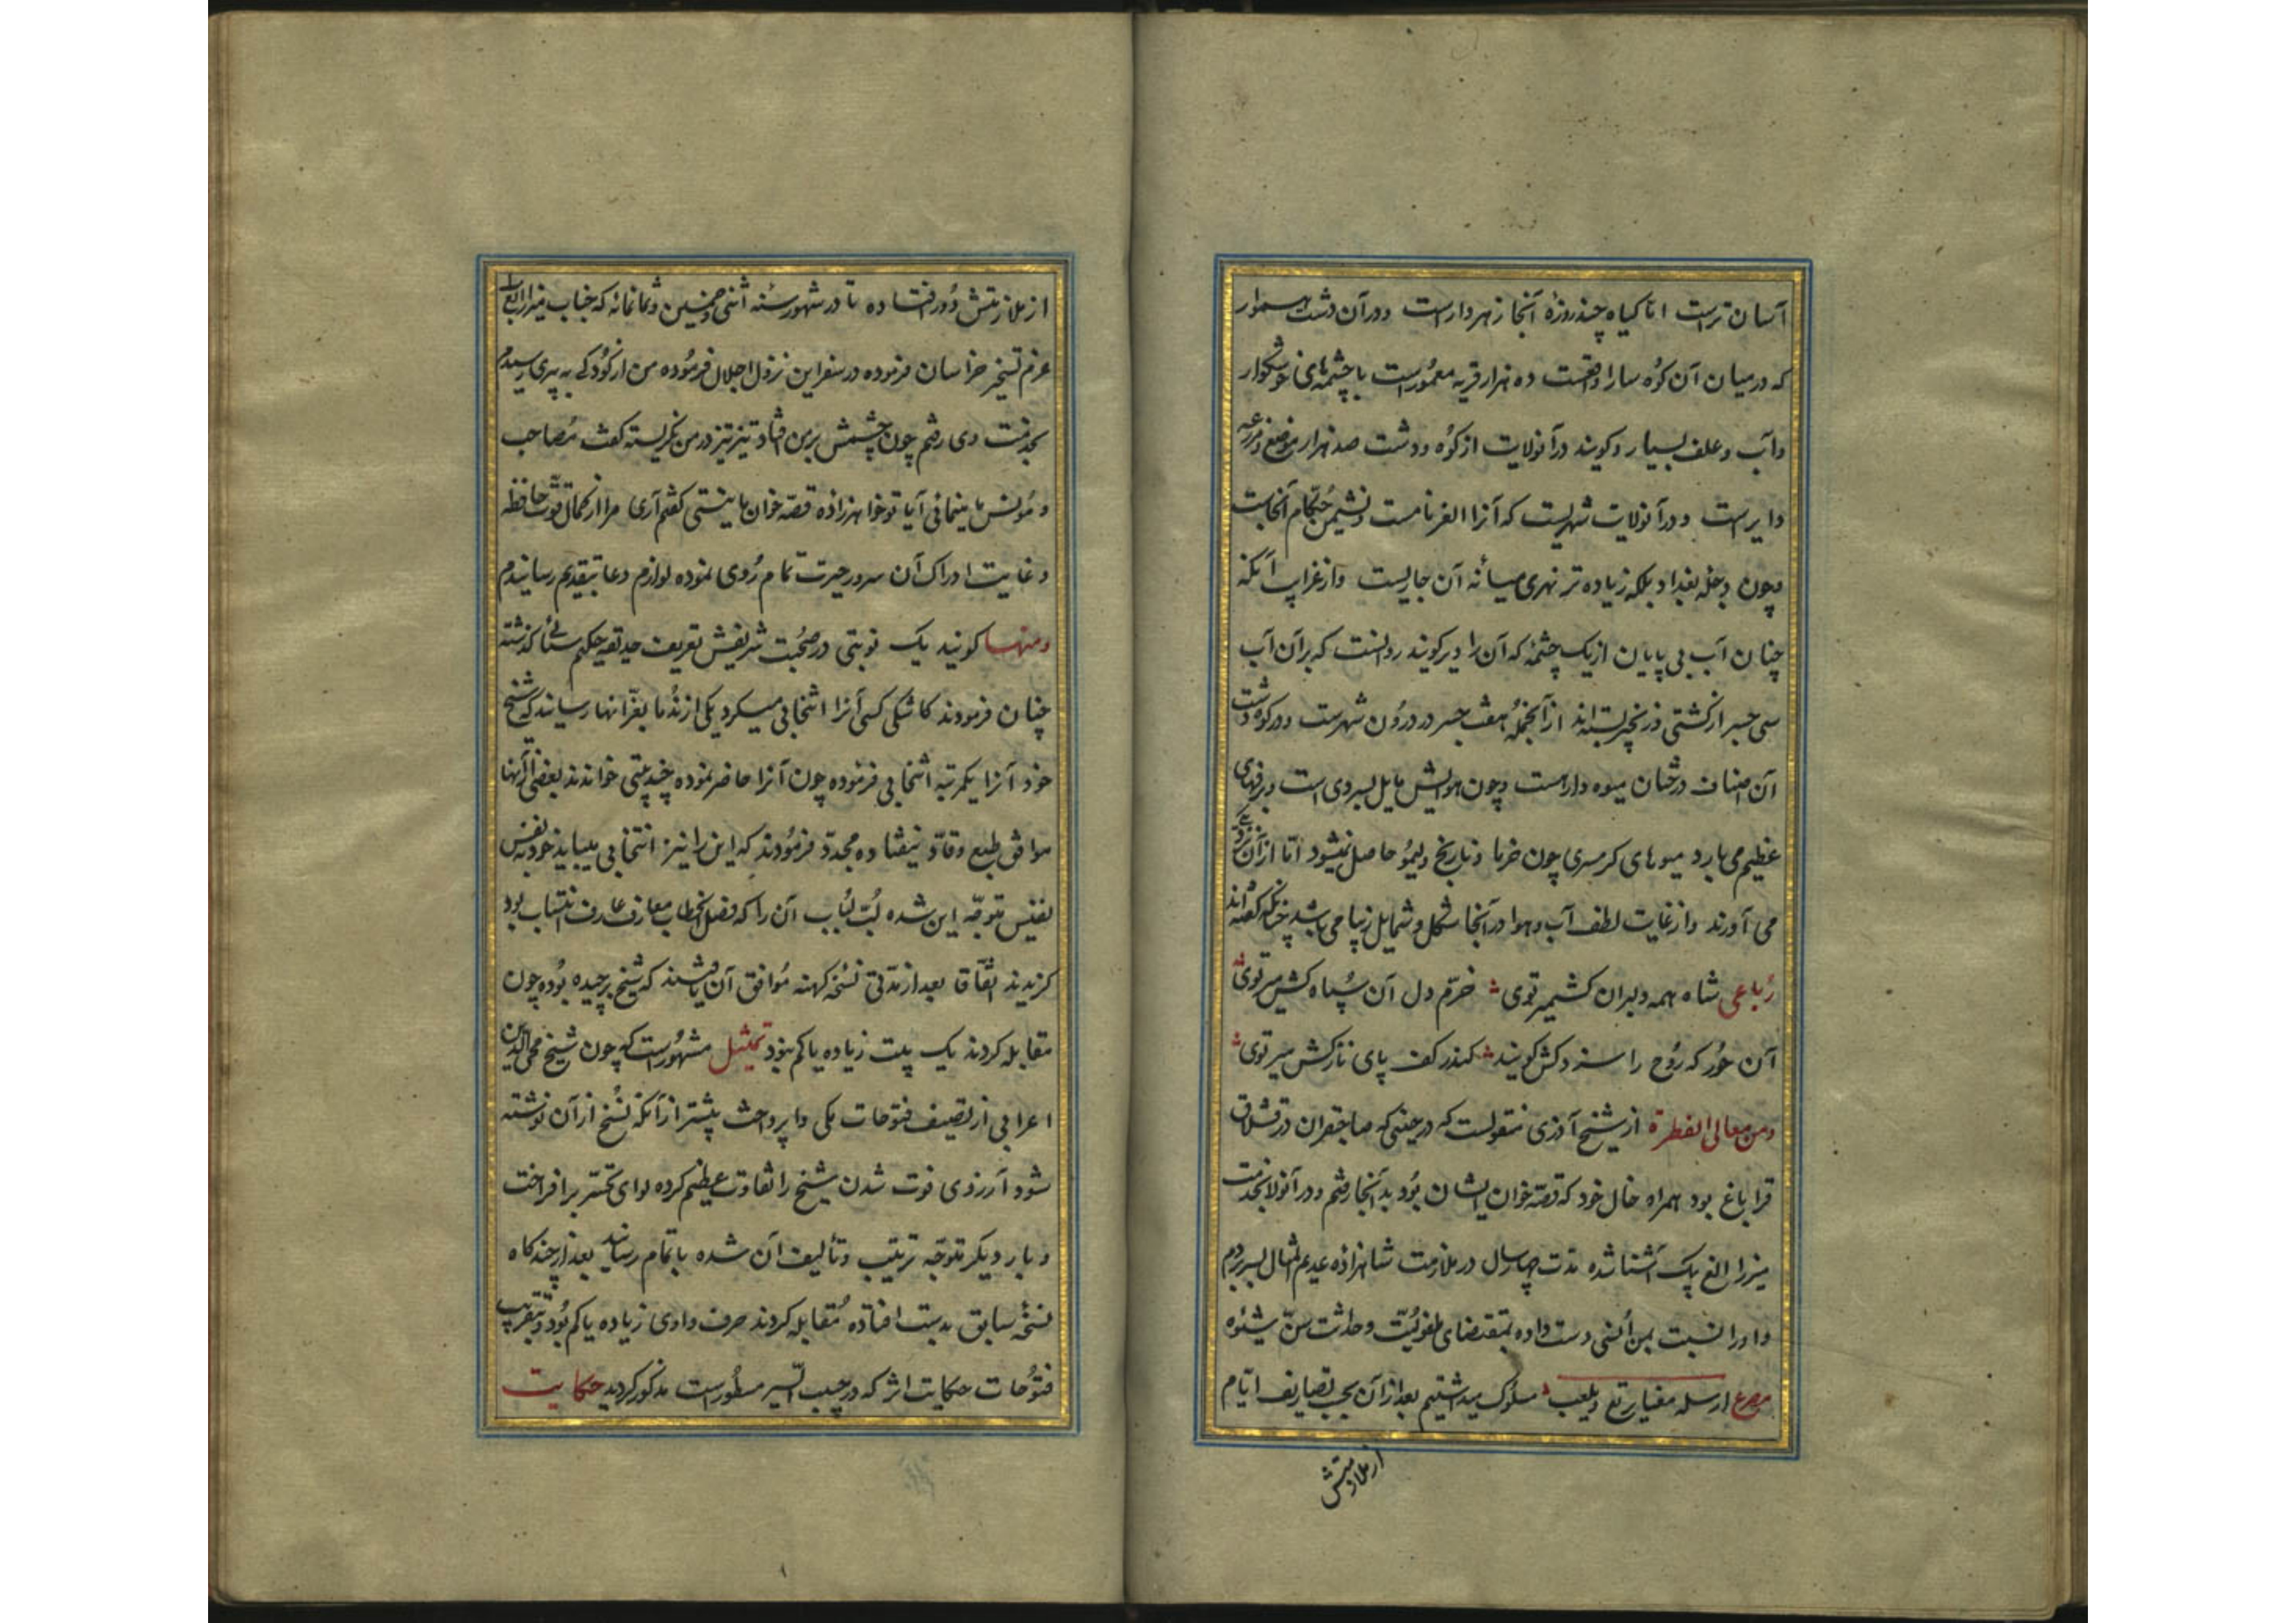 آسان ترست اما کیاه چند روزهٔ آنجا زهردارست و در آن دشت هموار
که در میان آن کوه سارا واقعست ده هزار قریه معمورست با چشمهای خوشکوار
و آب و علف بسیار و کویند در آنولایت از کوه و دشت صد هزار موضع و مزرعه
دایرست و در آنولایت شهریست که آنرا الغر نامست و نشیمن حکام آنجاست
و چون دجله بغداد بلکه زیاده تر نهری میانه آن جاریست و از غرایب آنکه
چنان آب بی پایان از یک چشمه که آن را ویر کویند روانست که بر آن آب
سی جسر از کشتی و زنجیر بسته‌اند از آنجمله هفت جسر در درون شهرست و در کوه و دشت
آن اصناف درختان میوه دارست و چون هوایش مایل بسردی است و برفهای
عظیم می بارد میوهای کرمسری چون خرما و نارنج و لیمو حاصل نمیشود اما از آن نزدیکی
می آورند و از غایت لطف آب و هوا در آنجا شکل و شمایل زیبا می باشد چنانکه کفته‌اند
رباعی شاه همه دلبران کشمیر توی خرم دل آن سپاه کش میر توی
آن حور که روح را سزد کش کویند کندر کف پای نازکش میر توی
و من معالی الفطرة از شیخ آذری منقولست که در حینی که صاحبقران در قشلاق
قراباغ بود همراه خال خود که قصه خوان ایشان بود بدآنجا رفتم و در آنولا بخدمت
میرزا الغ بیک آشنا شده مدت چهار سال در ملازمت شاهزاده عدیم المثال بسر بردم
و او را نسبت بمن انسی دست داده بمقتضای طفولیت و حداثت سن شیوه
مصرع ارسله معنا یرتع و یلعب مسلوک میداشتیم بعد از آن بحسب تصاریف ایام
از ملازمتش
از ملازمتش دور افتاده تا در شهور سنه اثنی و خمسین و ثمانمائه که جناب میرزا الغ بیک
عزم تسخیر خراسان فرموده در اسفراین نزول اجلال فرموده من از کودکی به پیری رسیدم
بخدمت وی رفتم چون چشمش بر من افتاد تیز تیز در من نکریسته کفت مصاحب
و مونس ما مینمائی آیا تو خواهرزاده قصه خوان ما نیستی کفتم آری مرا از کمال قوت حافظه
و غایت ادراک آن سرور حیرت تمام روی نموده لوازم دعا بتقدیم رسانیدم
و منها کویند یک نوبتی در صحبت شریفش تعریف حدیقه حکیم سنائی کذشته
چنان فرمودند کاشکی کسی آنرا انتخابی میکرد یکی از ندما بعز انها رسانید که شیخ
خود آنرا یکمرتبه انتخابی فرموده چون آنرا حاضر نموده چند بیتی خواندند بعضی از آنها
موافق طبع وقاد نیفتاده مجدد فرمودند که این را نیز انتخابی میباید خود بنفس
نفیس متوجه این شده لب لباب آن را که فصل الخطاب معارف عارف انتساب بود
کزیدند اتفاقا بعد از مدتی نسخه کهنه موافق آن یافتند که شیخ برچیده بوده چون
مقابله کردند یک بیت زیاده یا کم نبود تمثیل مشهورست که چون شیخ محی الدین
اعرابی از تصنیف فتوحات مکی وا پرداخت پیشتر از آنکه نسخ از آن نوشته
شود آرزوی فوت شدن شیخ را تفاوت عظیم کرده لوای تحسر برافراخت
و بار دیکر متوجه ترتیب و تألیف آن شده باتمام رسانید بعد از چند کاه
نسخهٔ سابق بدست افتاده مقابله کردند حرف و اوی زیاده یا کم بود و بتقریب
فتوحات حکایت اثر که در حبیب السیر مسطورست مذکور کردید حکایت